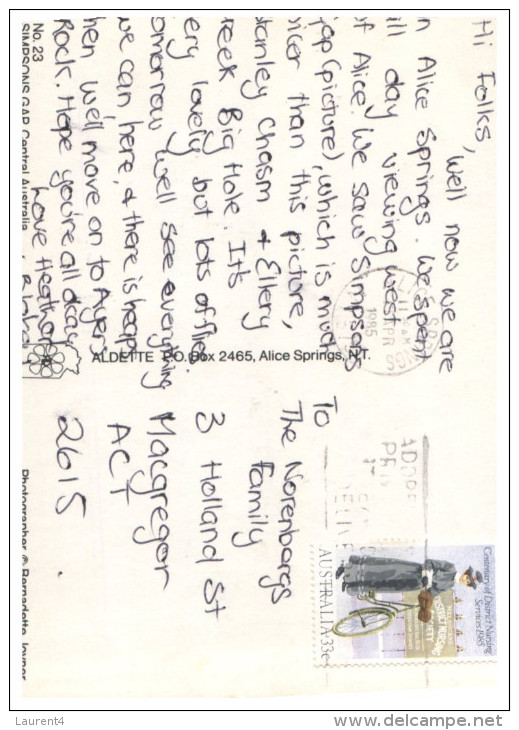 Hi Folks,
Well now we are
in Alice Springs. We spent
all day viewing west
of Alice. We saw Simpsons
Gap (picture), which is much
nicer than this picture,
Stanley Chasm & Ellery
Creek Big Hole. It's
very lovely but lots of flies.
Tomorrow we'll see everything
we can here, & there is heaps
then we'll move on to Ayers
Rock. Hope you're all okay
Love Heather
No. 23
SIMPSONS GAP Central Australia
ALDETTE P.O. Box 2465, Alice Springs, N.T.
1985
To
The Norenbergs
Family
3 Holland St
Macgregor
ACT
2615
Centenary of District Nursing
Services 1985
AUSTRALIA 33c
Photographer © Bernadette
Laurent4
delcampe.net